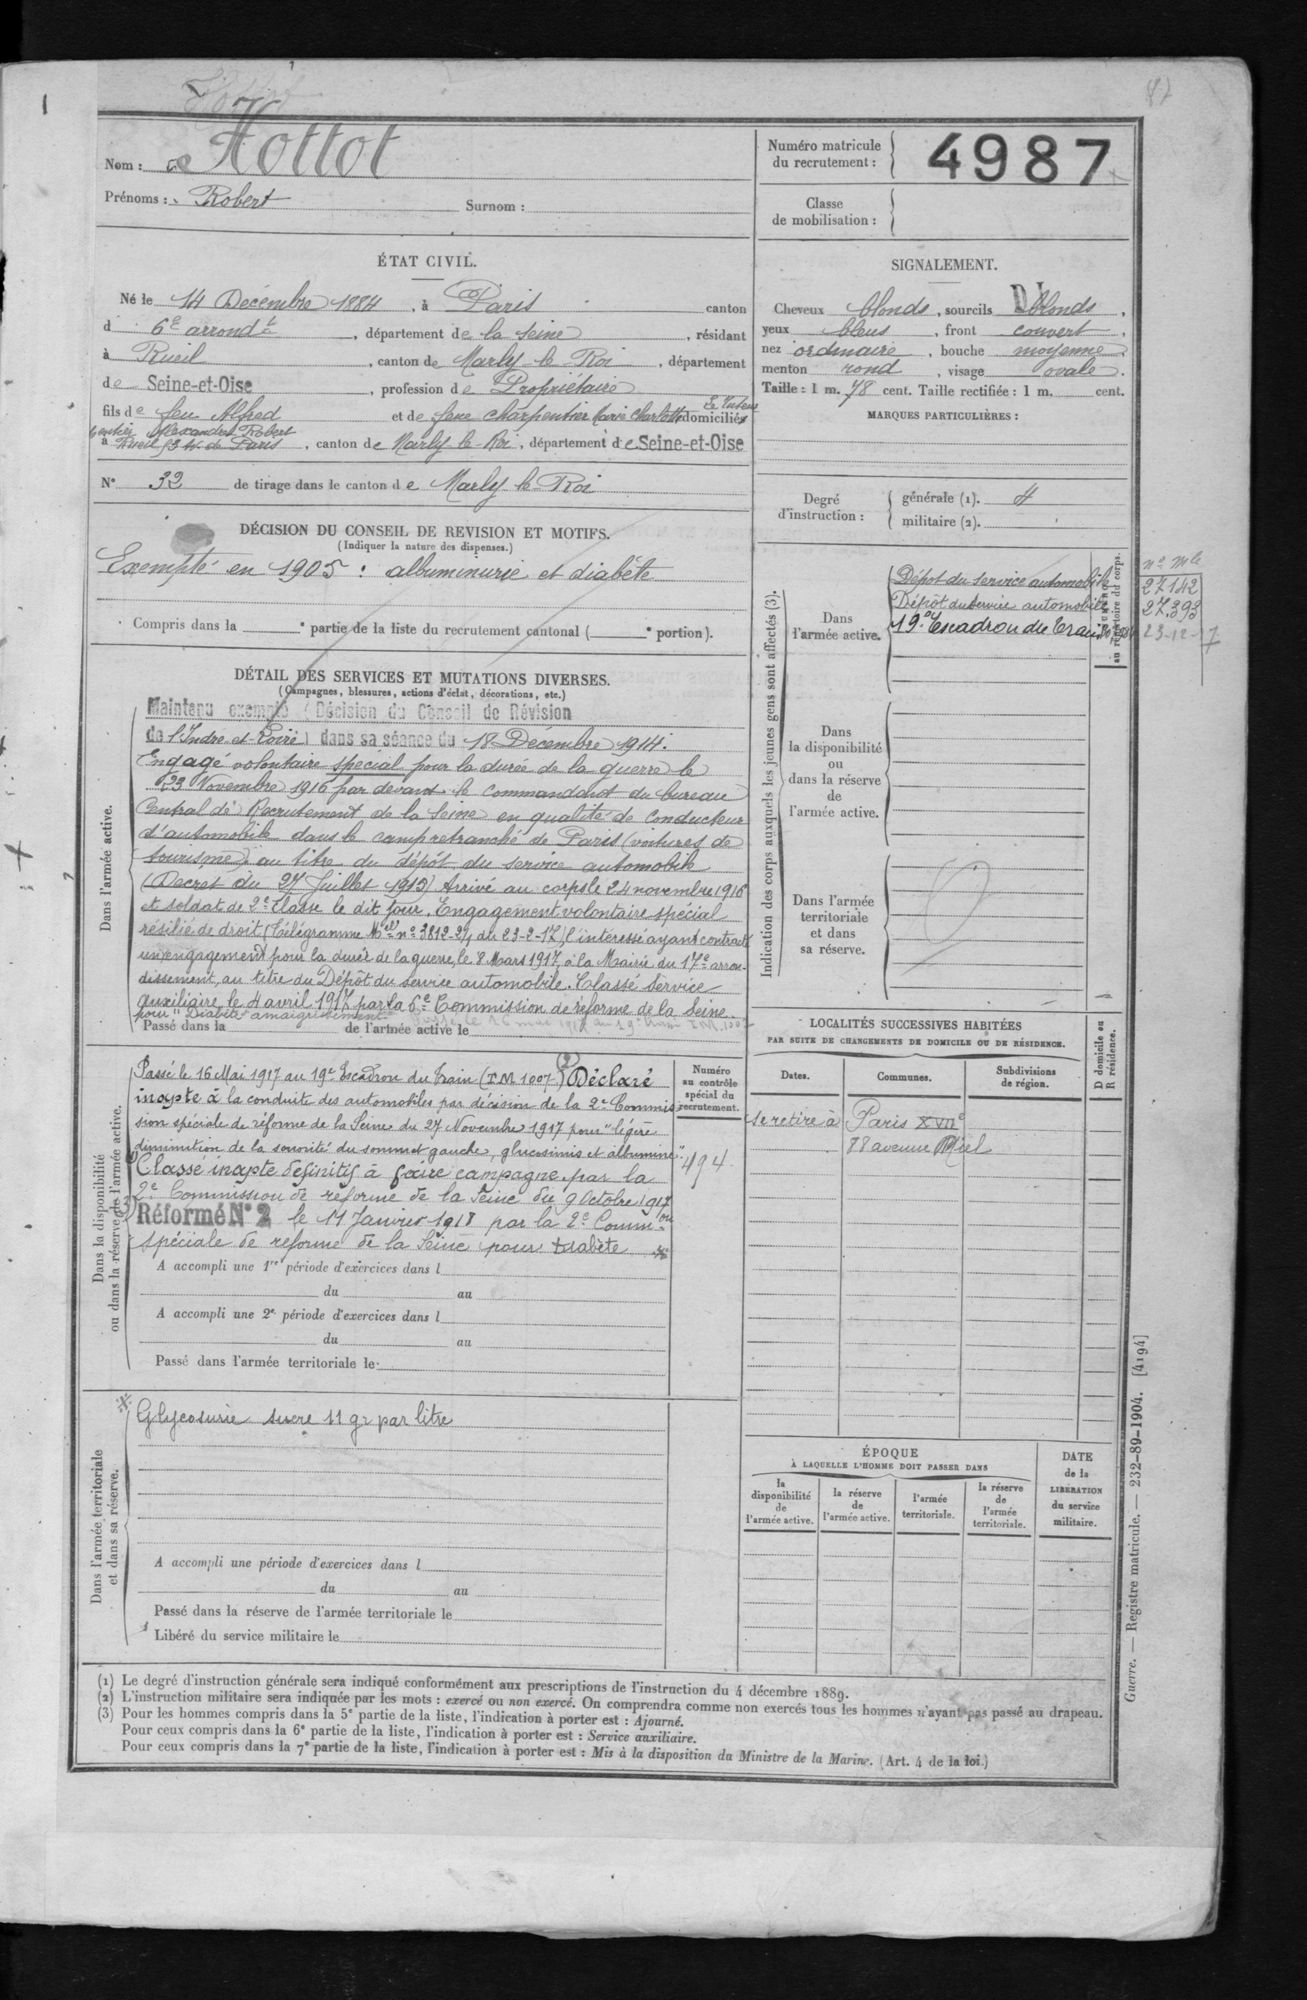 Nom : Hottot
Prénoms : Robert Surnom :
Numéro matricule du recrutement : 4987
Classe de mobilisation :
ÉTAT CIVIL.
Né le 14 Décembre 1884, à Paris canton
d 6e arrondt, département de la Seine, résidant
à Rueil, canton de Marly le Roi, département
de Seine-et-Oise, profession de Propriétaire
fils de feu Alfred et de feue Charpentier Marie Charlotte domiciliés
Alexandre Robert
à Rueil, canton de Marly le Roi, département de Seine-et-Oise
N° 33 de tirage dans le canton de Marly le Roi
SIGNALEMENT.
Cheveux blonds, sourcils blonds,
yeux bleus, front couvert,
nez ordinaire, bouche moyenne,
menton rond, visage ovale.
Taille : 1 m. 78 cent. Taille rectifiée : 1 m. cent.
MARQUES PARTICULIÈRES :
Degré d'instruction :
générale (1). 4
militaire (2).
DÉCISION DU CONSEIL DE REVISION ET MOTIFS.
(Indiquer la nature des dispenses.)
Exempté en 1905 : albuminurie et diabète
Compris dans la e partie de la liste du recrutement cantonal ( e portion).
DÉTAIL DES SERVICES ET MUTATIONS DIVERSES.
(Campagnes, blessures, actions d'éclat, décorations, etc.)
Dans l'armée active.
Maintenu exempté (Décision du Conseil de Révision
de l'Indre-et-Loire) dans sa séance du 18 Décembre 1914.
Engagé volontaire spécial pour la durée de la guerre le
23 Novembre 1916 par devant le commandant du bureau
Central de Recrutement de la Seine en qualité de conducteur
d'automobile dans le camp retranché de Paris (voitures de
tourisme) au titre du dépôt du service automobile
(Decret du 27 Juillet 1915) Arrivé au corps le 24 novembre 1916
et soldat de 2e classe le dit jour. Engagement volontaire spécial
résilié de droit (Télégramme Mel n° 3812-2/1 du 23-2-17) l'interessé ayant contracté
un engagement pour la durée de la guerre, le 8 Mars 1917, à la Mairie du 17e arron-
dissement, au titre du Dépôt du service automobile. Classé Service
auxiliaire le 4 avril 1917 par la 6e Commission de réforme de la Seine
pour "Diabète amaigrissement"
Passé dans la de l'armée active le
Passé le 16 mai 1917 au 19e Train T.M. 1007
Dans la disponibilité ou dans la réserve de l'armée active.
Passé le 16 Mai 1917 au 19e Escadron du Train (T.M 1007) (2) Déclaré
inapte à la conduite des automobiles par décision de la 2e Commis
sion spéciale de réforme de la Seine du 27 Novembre 1917 pour "légère
diminution de la sonorité du sommet gauche, glucosimis et albumine".
Classé inapte définitif à faire campagne par la
2e Commission de réforme de la Seine du 9 Octobre 1917
(3) Réformé N° 2 le 11 Janvier 1918 par la 2e Common
spéciale de réforme de la Seine pour Diabète
Numéro au contrôle spécial du recrutement.
494
A accompli une 1re période d'exercices dans l
du au
A accompli une 2e période d'exercices dans l
du au
Passé dans l'armée territoriale le
Dans l'armée territoriale et dans sa réserve.
Glycosurie sucre 11 gr par litre
A accompli une période d'exercices dans l
du au
Passé dans la réserve de l'armée territoriale le
Libéré du service militaire le
Indication des corps auxquels les jeunes gens sont affectés (3).
Dans l'armée active.
Dépôt du service automobile
Dépôt du Service automobile
19e Escadron du Train
au répertoire du corps.
n° mle
27142
27.393
23-12-17
Dans la disponibilité ou dans la réserve de l'armée active.
Dans l'armée territoriale et dans sa réserve.
LOCALITÉS SUCCESSIVES HABITÉES
PAR SUITE DE CHANGEMENTS DE DOMICILE OU DE RÉSIDENCE.
Dates. Communes. Subdivisions de région. D domicile ou R résidence.
se retire à Paris XVIIe
88 avenue Niel
ÉPOQUE
À LAQUELLE L'HOMME DOIT PASSER DANS
la disponibilité de l'armée active.
la réserve de l'armée active.
l'armée territoriale.
la réserve de l'armée territoriale.
DATE de la LIBÉRATION du service militaire.
(1) Le degré d'instruction générale sera indiqué conformément aux prescriptions de l'instruction du 4 décembre 1889.
(2) L'instruction militaire sera indiquée par les mots : exercé ou non exercé. On comprendra comme non exercés tous les hommes n'ayant pas passé au drapeau.
(3) Pour les hommes compris dans la 5e partie de la liste, l'indication à porter est : Ajourné.
Pour ceux compris dans la 6e partie de la liste, l'indication à porter est : Service auxiliaire.
Pour ceux compris dans la 7e partie de la liste, l'indication à porter est : Mis à la disposition du Ministre de la Marine. (Art. 4 de la loi.)
Guerre. — Registre matricule. — 232-89-1904. [4194]